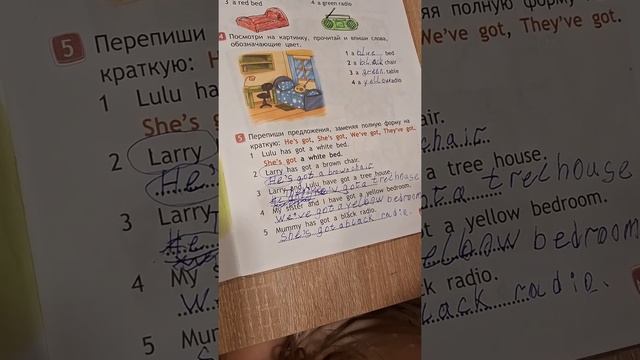 3 a red bed
4 a green radio
4 Посмотри на картинку, прочитай и впиши слова,
обозначающие цвет.
1 a blue bed
2 a black chair
3 a green table
4 a yellow radio
5 Перепиши предложения, заменяя полную форму на
краткую: He's got, She's got, We've got, They've got.
1 Lulu has got a white bed.
She's got a white bed.
2 Larry has got a brown chair.
He's got a brown chair
3 Larry and Lulu have got a tree house.
got a treehouse
4 My sister and I have got a yellow bedroom.
We've got a yelbow bedroom
5 Mummy has got a black radio.
She's got a black radie.
5 Перепиши
краткую: He
1 Lulu has
She's
2 Larry
He
3 Larry
He
4 My s
W
5 Mur
меняя полную форму
We've got, They've got.
air.
chair.
a tree house.
a trelhouse
t a yellow bedroom.
elbow bedroom
ck radio.
lack radie.